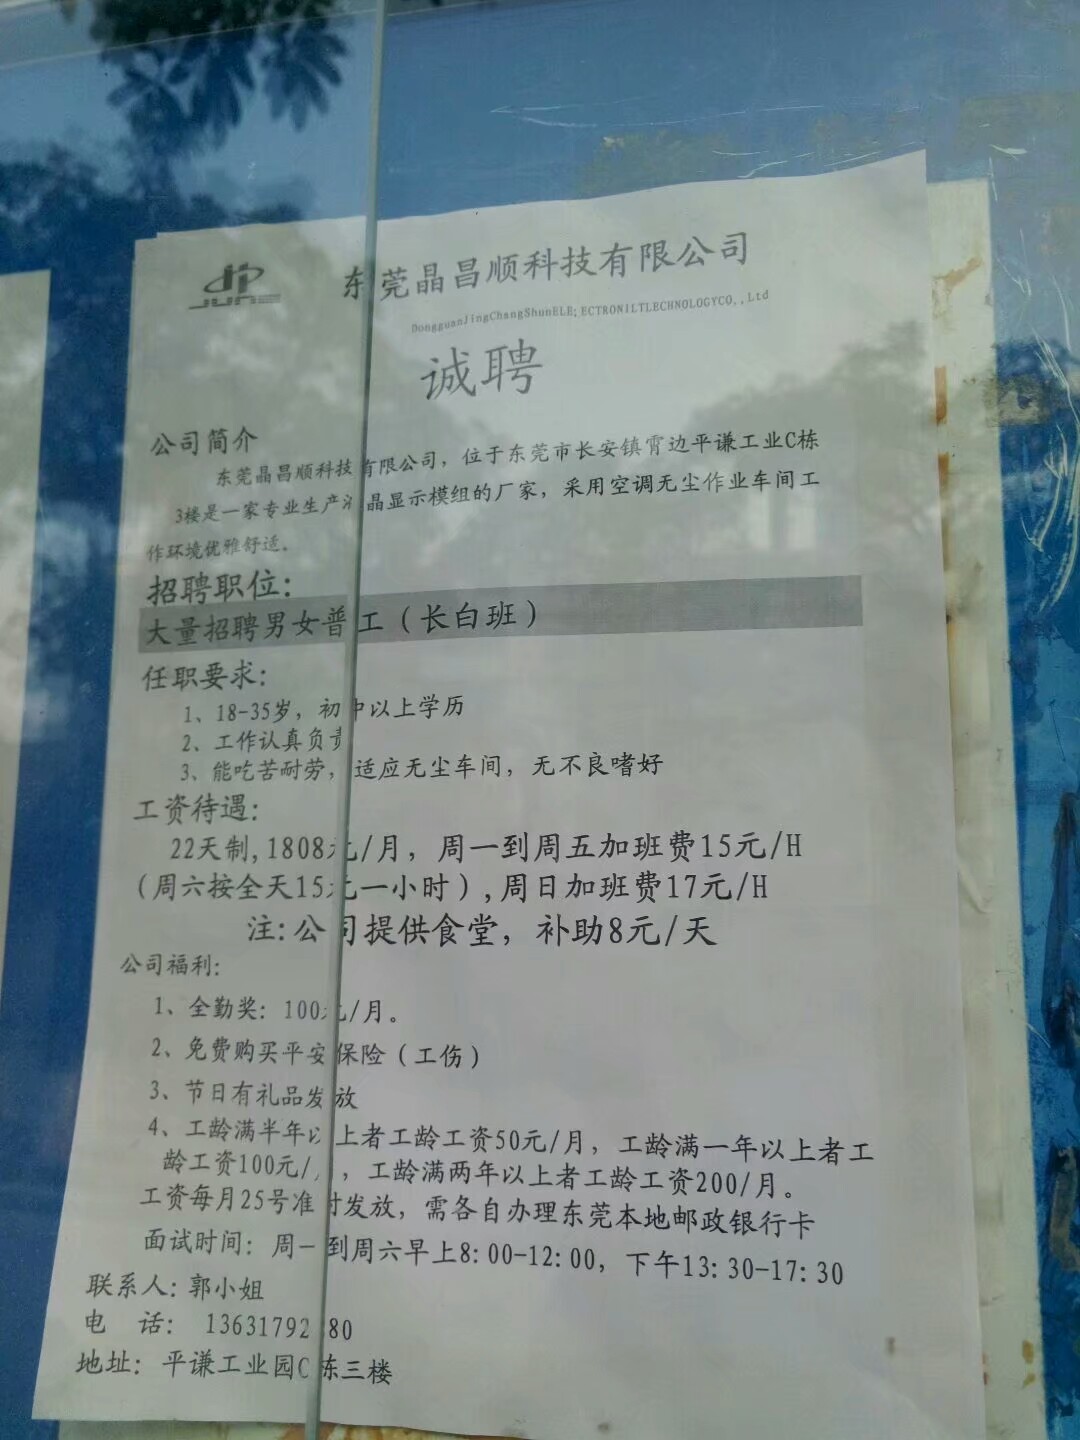 东莞晶昌顺科技有限公司
DongguanJingChangShunELE;ECTRONILTLECHNOLOGYCO.,Ltd
诚聘
公司简介
东莞晶昌顺科技有限公司，位于东莞市长安镇霄边平谦工业C栋
3楼是一家专业生产液晶显示模组的厂家，采用空调无尘作业车间工
作环境优雅舒适。
招聘职位：
大量招聘男女普工（长白班）
任职要求：
1、18-35岁，初中以上学历
2、工作认真负责
3、能吃苦耐劳，适应无尘车间，无不良嗜好
工资待遇：
22天制,1808元/月，周一到周五加班费15元/H
（周六按全天15元一小时）,周日加班费17元/H
注:公司提供食堂，补助8元/天
公司福利：
1、全勤奖：100元/月。
2、免费购买平安保险（工伤）
3、节日有礼品发放
4、工龄满半年以上者工龄工资50元/月，工龄满一年以上者工
龄工资100元/月，工龄满两年以上者工龄工资200/月。
工资每月25号准时发放，需各自办理东莞本地邮政银行卡
面试时间：周一到周六早上8:00-12:00，下午13:30-17:30
联系人：郭小姐
电 话： 13631792 80
地址：平谦工业园C栋三楼